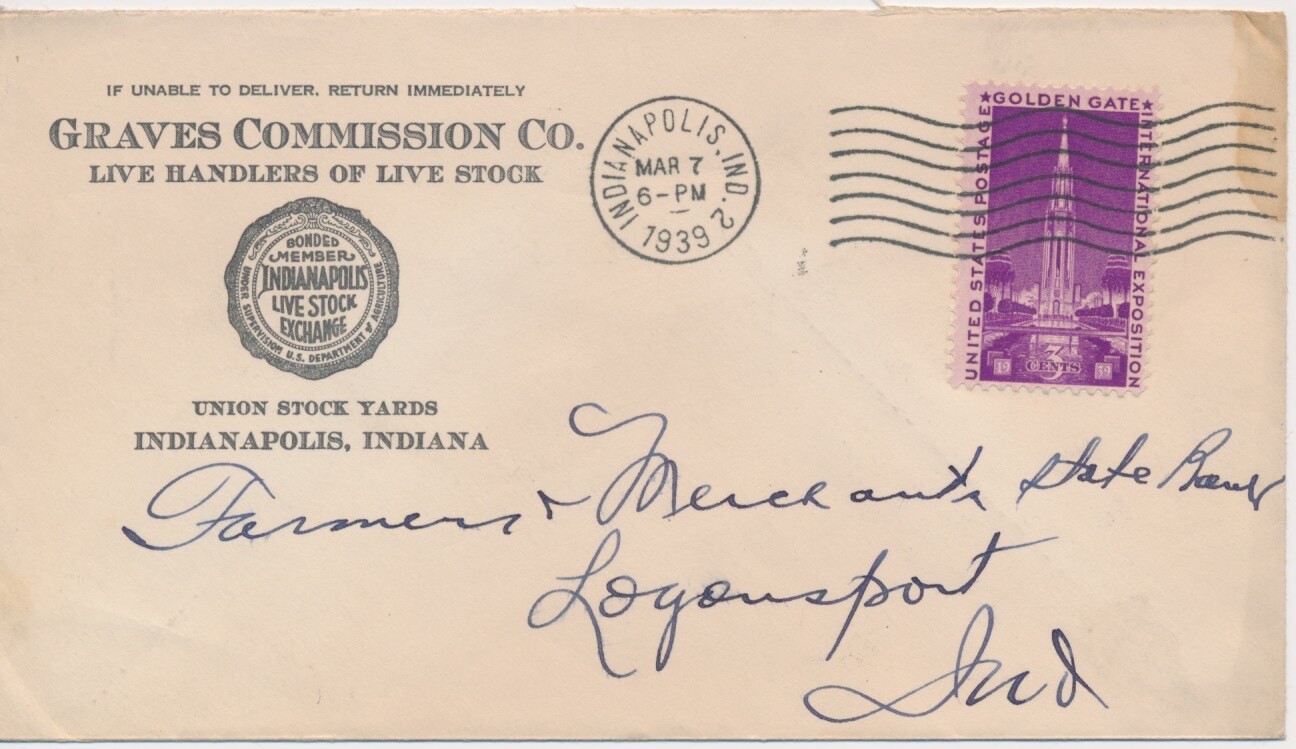 IF UNABLE TO DELIVER, RETURN IMMEDIATELY
GRAVES COMMISSION CO.
LIVE HANDLERS OF LIVE STOCK
BONDED
MEMBER
INDIANAPOLIS
LIVE STOCK
EXCHANGE
UNDER SUPERVISION U.S. DEPARTMENT of AGRICULTURE
UNION STOCK YARDS
INDIANAPOLIS, INDIANA
INDIANAPOLIS, IND. 2
MAR 7
6-PM
1939
UNITED STATES POSTAGE
★GOLDEN GATE★
INTERNATIONAL EXPOSITION
3
19 CENTS 39
Farmers & Merchants State Bank
Logansport
Ind